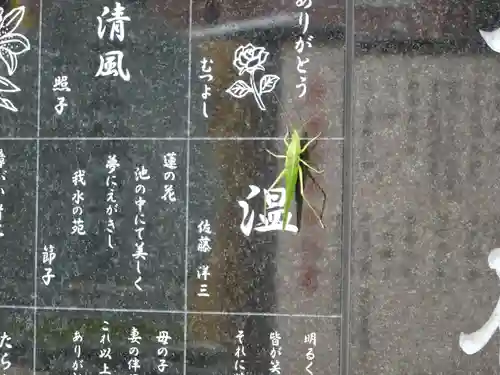 ありがとう
むつよし
清風
照子
温
佐藤 洋三
蓮の花
池の中にて美しく
夢にえがきし
我水の苑
節子
明るく
皆が笑
それに
母の子
妻の伴
これ以上
ありが
たら